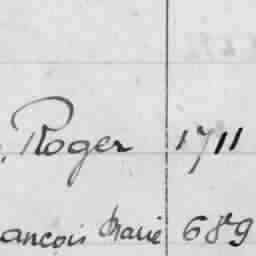 . Roger 1711
ancois Marie 689